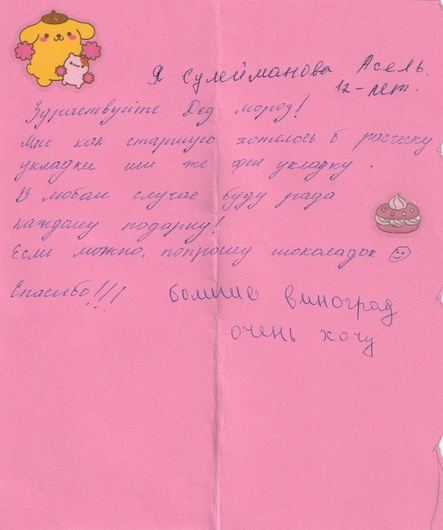 Я Сулейманова Асель.
12-лет.
Здраствуйте Дед мороз!
Мне как старшую хотелось б расческу
укладки или же фен укладку.
В любом случае буду рада
каждому подарку!
Если можно, попрошу шоколадок
Спасибо!!! больше виноград
очень хочу